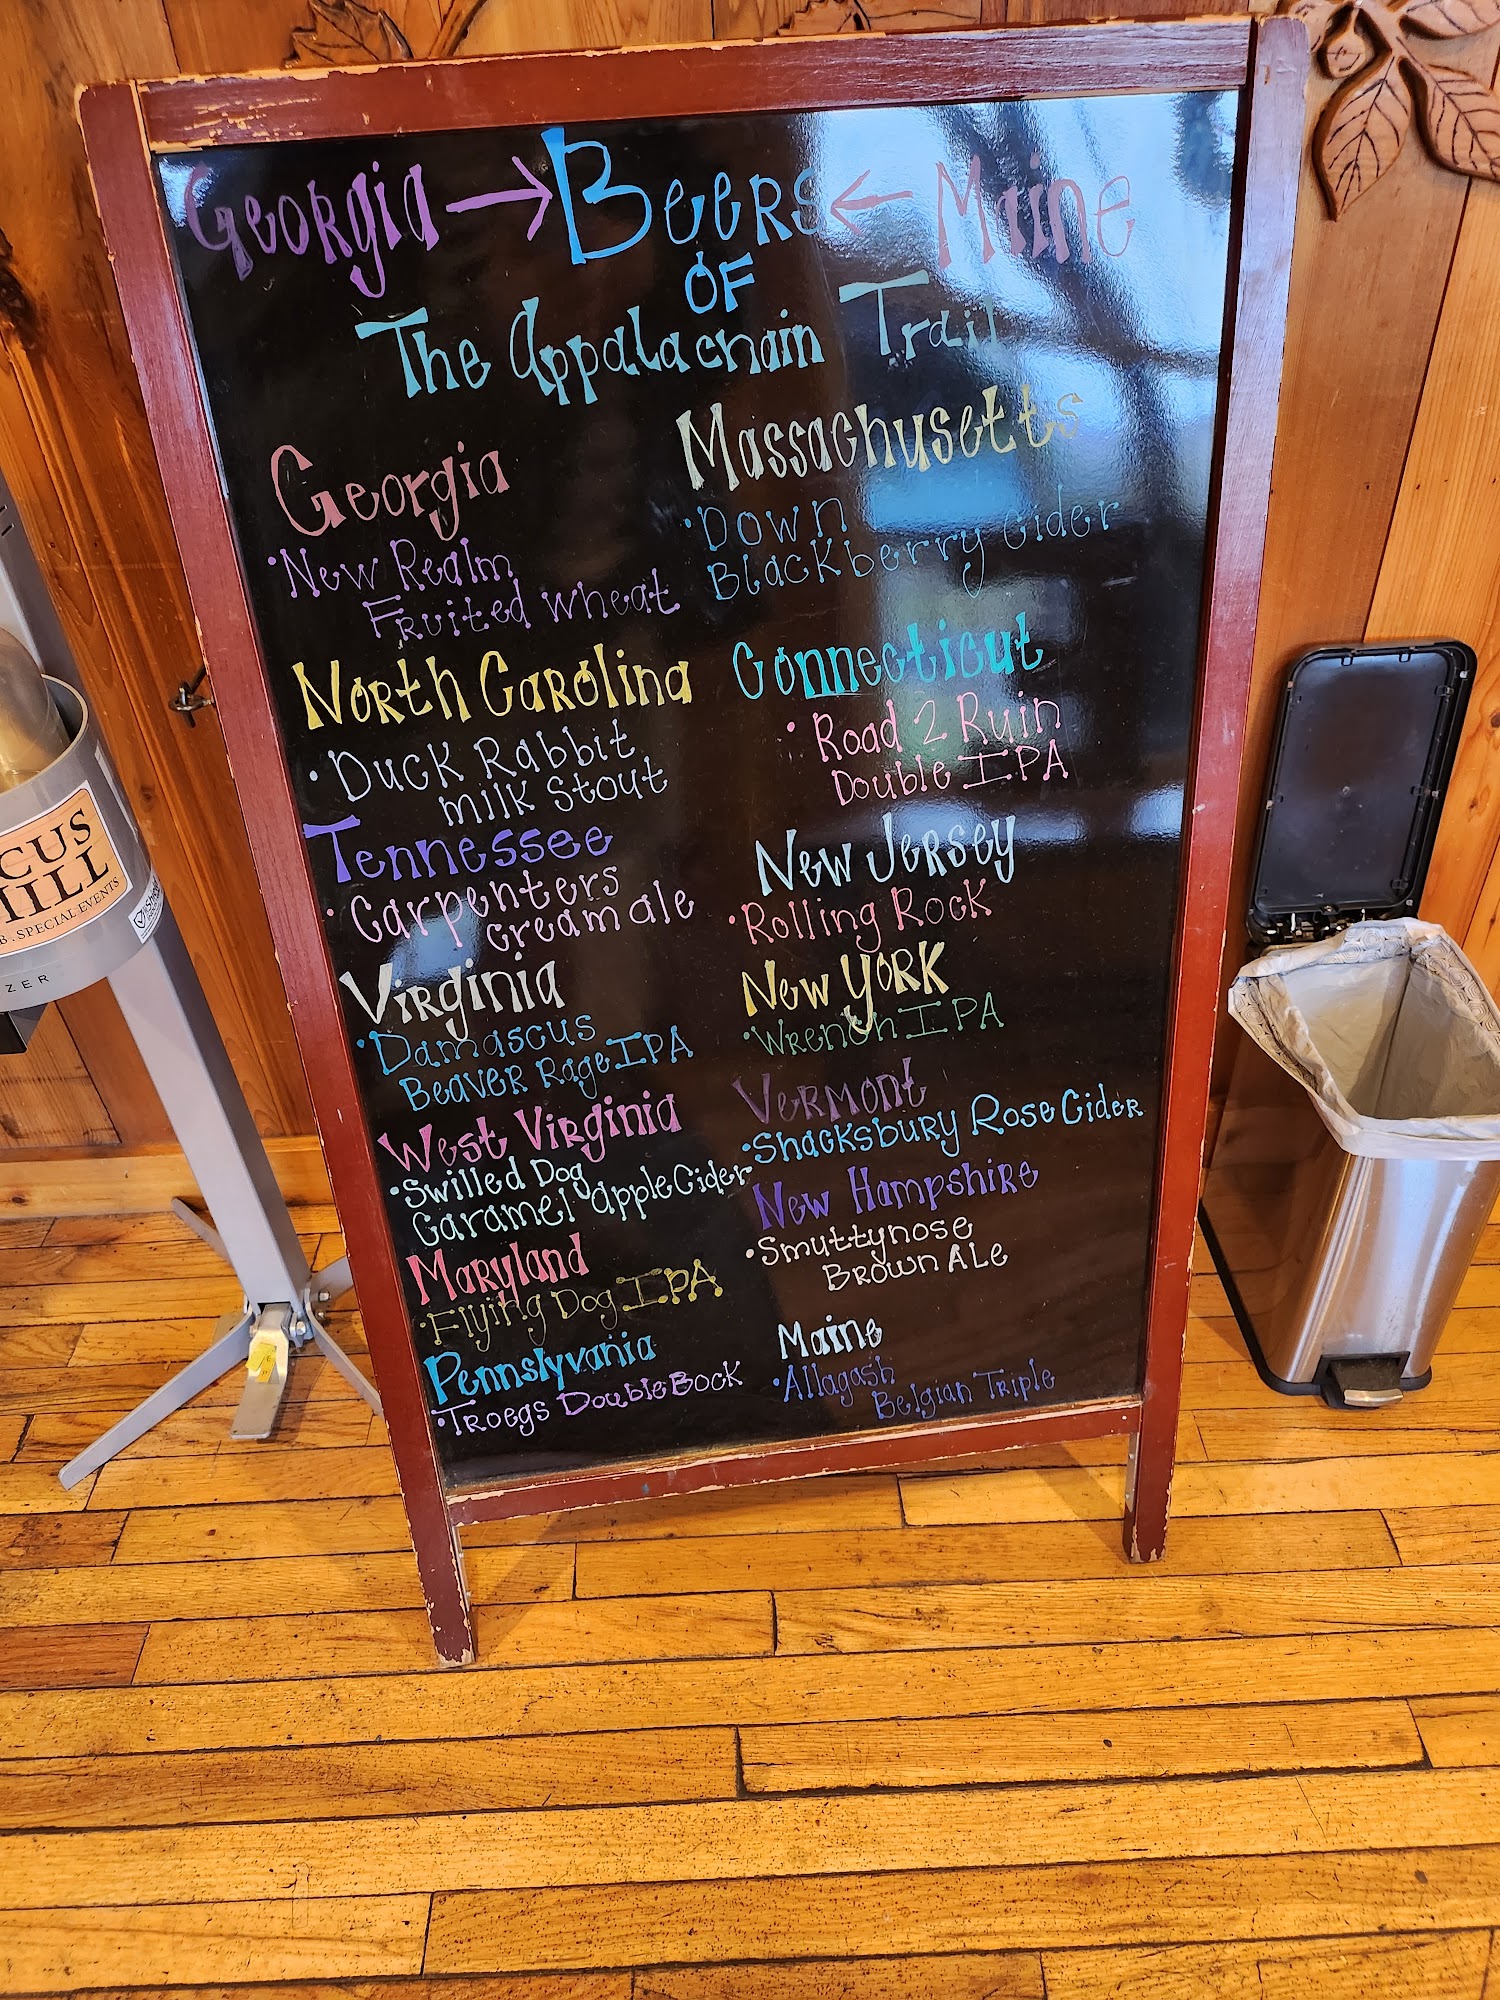 Georgia → Beers ← Maine
OF
The Appalachain Trail
Georgia
• New Realm
Fruited wheat
North Carolina
• Duck Rabbit
milk stout
Tennessee
• Carpenters
cream ale
Virginia
• Damascus
Beaver Rage IPA
West Virginia
• Swilled Dog
Caramel apple Cider
Maryland
• Flying Dog IPA
Pennslyvania
• Troegs Double Bock
Massachusetts
• Down
Blackberry Cider
Connecticut
• Road 2 Ruin
Double IPA
New Jersey
• Rolling Rock
New York
• Wrench IPA
Vermont
• Shacksbury Rose Cider
New Hampshire
• Smuttynose
Brown Ale
Maine
• Allagash
Belgian Triple
CUS
ILL
B. SPECIAL EVENTS
ZER